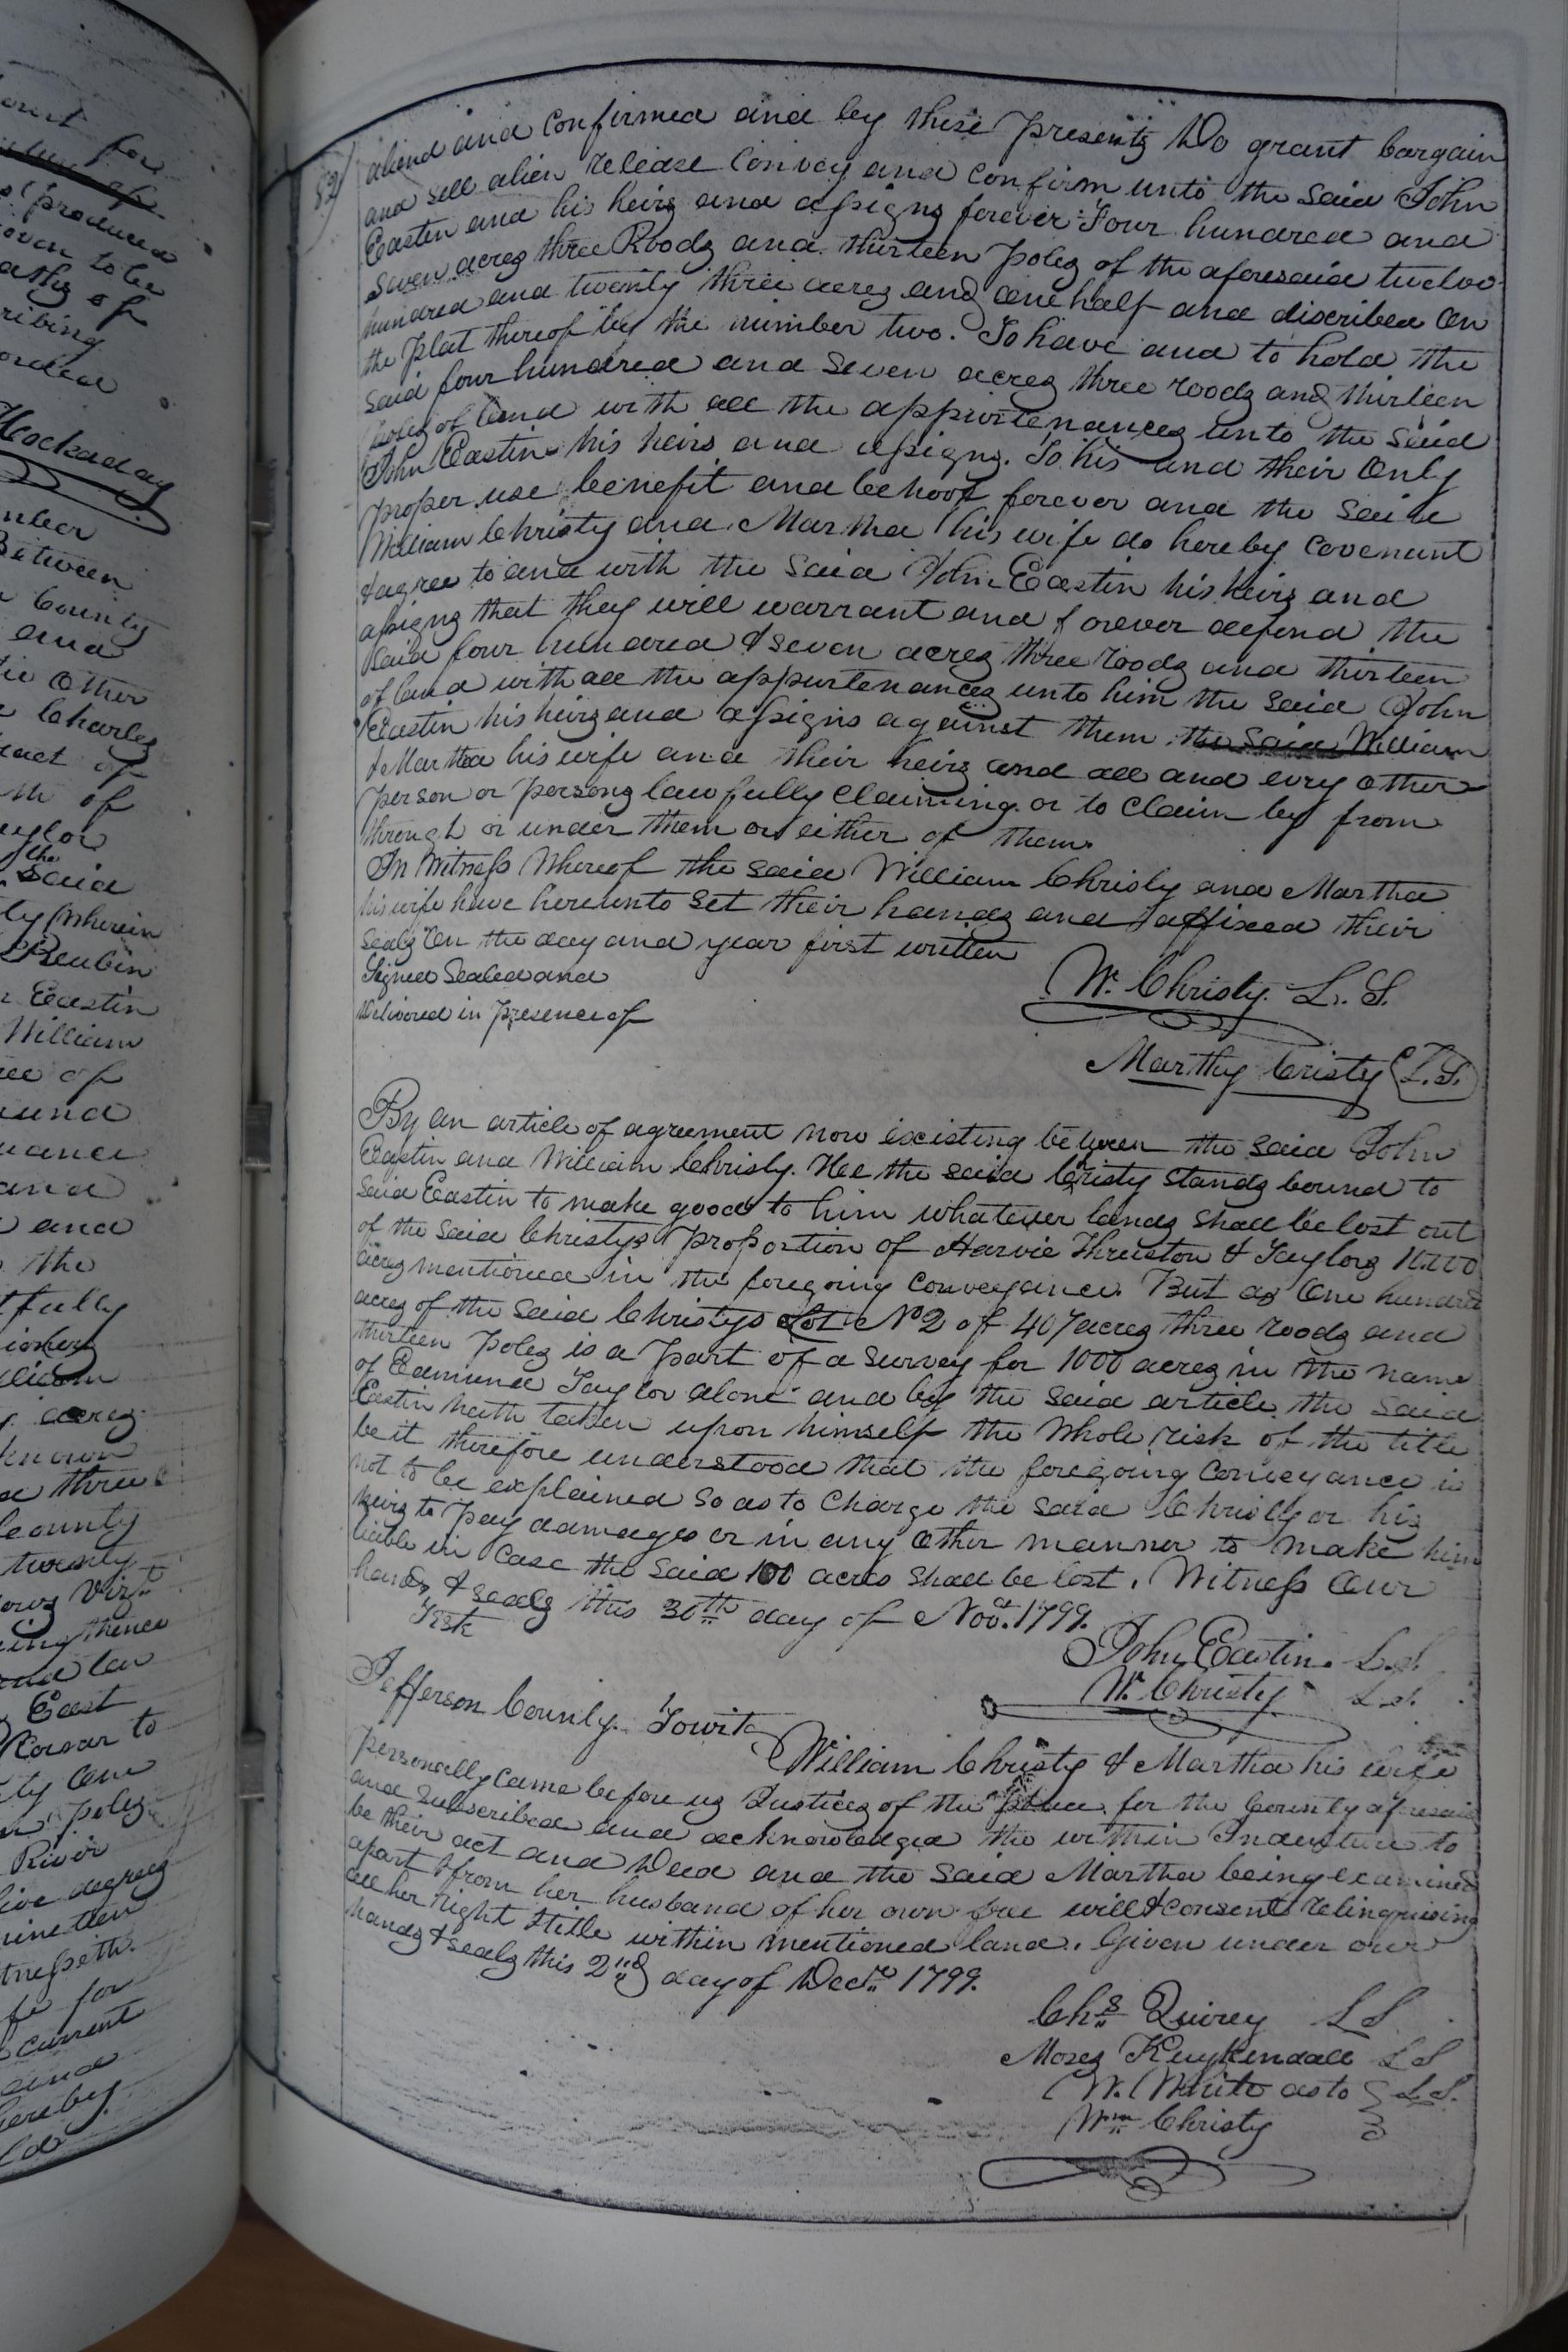 ount for
produced
oven to be
aths of
ribing
orded
Hockaday
mber
Between
County
and
the Other
Charles
ract of
th of
aylor
the
said
ly Wherein
Reubin
Eastin
William
ce of
and
and
the
fully
lliam
acres
known
three
County
twenty
ows Vizt
ing thence
East
Corner to
ty One
poles
River
five degrees
nineteen
tnesseth
for
current
and
hereby
82
aliend and confirmed and by these presents Do grant bargain
and sell alien release Convey and confirm unto the said John
Eastin and his heirs and assigns forever Four hundred and
seven acres three Roods and thirteen poles of the aforesaid twelve
hundred and twenty three acres and one half and discribed On
the plat thereof by the number two. To have and to hold the
said four hundred and seven acres three roods and thirteen
poles of land with all the appurtenances unto the said
John Eastin his heirs and assigns. To his and their Only
proper use benefit and behoof forever and the said
William Christy and Martha his wife do hereby Covenant
& agree to and with the said John Eastin his heirs and
assigns that they will warrant and forever defend the
said four hundred & seven acres three roods and thirteen
of land with all the appurtenances unto him the said John
Eastin his heirs and assigns against them the said William
& Martha his wife and their heirs and all and evry other
person or persons lawfully Claiming or to Claim by from
through or under them or either of them.
In Witness Whereof the said William Christy and Martha
his wife have hereunto set their hands and affixed their
seals On the day and year first written
Signed Sealed and
delivered in presence of
W. Christy. L. S.
Marthy Cristy L.S.
By an article of agreement now existing between the said John
Eastin and William Christy. Hee the said Cristy Stands bound to
said Eastin to make good to him whatever lands shall be lost out
of the said Christys proportion of Harvie Thruston & Taylors 11000
acres mentioned in the foregoing Conveyance. But as One hundred
acres of the said Christys Lot No 2 of 407 acres three roods and
thirteen poles is a part of a survey for 1000 acres in the name
of Edmund Taylor alone and by the said article the said
Eastin hath taken upon himself the Whole risk of the title
be it therefore understood that the foregoing Conveyance is
not to be explained so as to Charge the said Christy or his
heirs to pay damages or in any Other manner to make him
liable in Case the said 100 acres shall be lost. Witness Our
hands & seals this 30th day of Novr. 1799.
Test
John Eastin. L.S.
W. Christy L.S.
Jefferson County. Towit
William Christy & Martha his wife
personally came before us Justices of the peace for the County aforesaid
and subscribed and acknowledged the within Indenture to
be their act and Deed and the said Martha being examined
apart from her husband of her own free will & consent relinquising
all her right & title within mentioned land. Given under our
hands & seals this 2nd day of Decr. 1799.
Chs Quirey L S
Moses Kuykendall L S
W. White as to L S.
Wm Christy